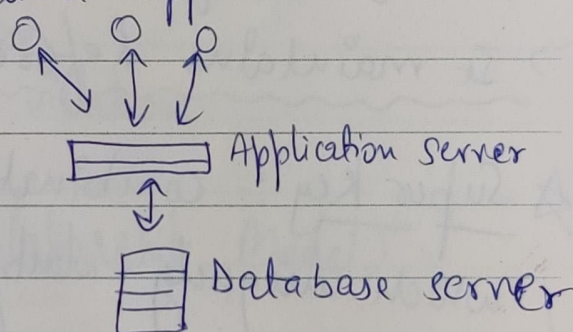 Application server
Database server